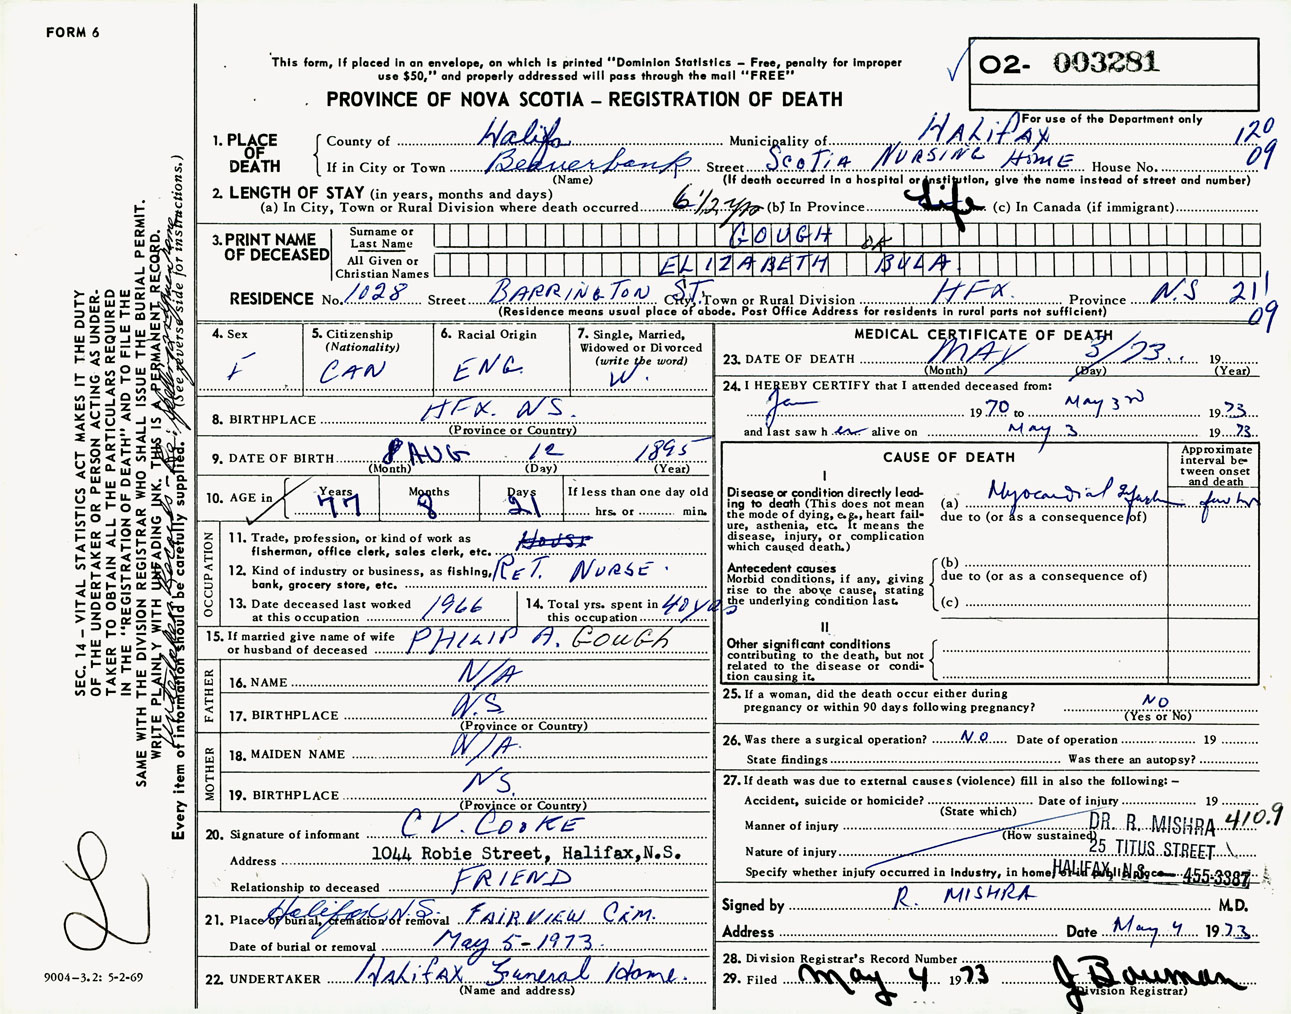 FORM 6
This form, if placed in an envelope, on which is printed "Dominion Statistics – Free, penalty for improper
use $50," and properly addressed will pass through the mail "FREE"
PROVINCE OF NOVA SCOTIA – REGISTRATION OF DEATH
02- 003281
For use of the Department only
1. PLACE OF DEATH
County of Halifax Municipality of HALifAX 120
If in City or Town Beaverbank Street SCOTIA NURSING HOME House No. 09
(Name) (If death occurred in a hospital or institution, give the name instead of street and number)
2. LENGTH OF STAY (in years, months and days)
(a) In City, Town or Rural Division where death occurred 6 1/2 yrs (b) In Province Life (c) In Canada (if immigrant)
3. PRINT NAME OF DECEASED
Surname or Last Name GOUGH
OR
All Given or Christian Names ELIZABETH BULA
RESIDENCE No. 1028 Street BARRINGTON ST. City, Town or Rural Division HFX. Province N.S 211
(Residence means usual place of abode. Post Office Address for residents in rural parts not sufficient) 09
4. Sex
F
5. Citizenship
(Nationality)
CAN
6. Racial Origin
ENG.
7. Single, Married,
Widowed or Divorced
(write the word)
W.
8. BIRTHPLACE HFX. N.S.
(Province or Country)
9. DATE OF BIRTH 8 AUG 12 1895
(Month) (Day) (Year)
10. AGE in Years Months Days If less than one day old
77 8 21 hrs. or min.
OCCUPATION
11. Trade, profession, or kind of work as
fisherman, office clerk, sales clerk, etc.
12. Kind of industry or business, as fishing,
bank, grocery store, etc. RET. NURSE.
13. Date deceased last worked
at this occupation 1966
14. Total yrs. spent in
this occupation 40 yrs
15. If married give name of wife
or husband of deceased PHILIP A. GOUGH
FATHER
16. NAME N/A
17. BIRTHPLACE N.S.
(Province or Country)
MOTHER
18. MAIDEN NAME N/A
19. BIRTHPLACE N.S.
(Province or Country)
20. Signature of informant C V. COOKE
Address 1044 Robie Street, Halifax, N.S.
Relationship to deceased FRIEND
21. Place of burial, cremation or removal Halifax N.S. FAIRVIEW CEM.
Date of burial or removal May 5-1973.
22. UNDERTAKER HALIFAX Funeral Home.
(Name and address)
MEDICAL CERTIFICATE OF DEATH
23. DATE OF DEATH MAY 3/73 19
(Month) (Day) (Year)
24. I HEREBY CERTIFY that I attended deceased from:
Jan 1970 to May 3rd 1973
and last saw her alive on May 3 1973.
CAUSE OF DEATH
Approximate interval between onset and death
I
Disease or condition directly leading to death (This does not
mean the mode of dying, e.g., heart failure, asthenia, etc. It means the
disease, injury, or complication
which caused death.)
(a) Myocardial few hrs
due to (or as a consequence of)
Antecedent causes
Morbid conditions, if any, giving
rise to the above cause, stating
the underlying condition last.
(b)
due to (or as a consequence of)
(c)
II
Other significant conditions
contributing to the death, but not
related to the disease or condition causing it.
25. If a woman, did the death occur either during
pregnancy or within 90 days following pregnancy? NO
(Yes or No)
26. Was there a surgical operation? N.O Date of operation 19
State findings Was there an autopsy?
27. If death was due to external causes (violence) fill in also the following: –
Accident, suicide or homicide? Date of injury 19
(State which)
Manner of injury DR. R. MISHRA 410.9
(How sustained)
Nature of injury 25 TITUS STREET
Specify whether injury occurred in Industry, in home, or in public place HALIFAX, N.S. 455-3387
Signed by R. MISHRA M.D.
Address Date May 4 1973
28. Division Registrar's Record Number
29. Filed May 4 1973 J Bowman
(Division Registrar)
SEC. 14 – VITAL STATISTICS ACT MAKES IT THE DUTY
OF THE UNDERTAKER OR PERSON ACTING AS UNDER-
TAKER TO OBTAIN ALL THE PARTICULARS REQUIRED
IN THE "REGISTRATION OF DEATH" AND TO FILE THE
SAME WITH THE DIVISION REGISTRAR WHO SHALL ISSUE THE BURIAL PERMIT.
WRITE PLAINLY WITH UNFADING INK. THIS IS A PERMANENT RECORD.
Every item of information should be carefully supplied. (See reverse side for instructions.)
9004-3.2: 5-2-69